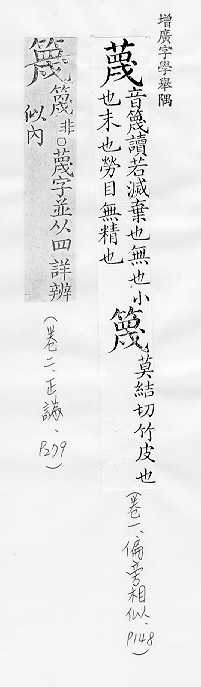 增廣字學舉隅
蔑音篾讀若滅棄也無也小
也末也勞目無精也
篾莫結切竹皮也
(卷一、偏旁相似、P148)
篾篾非○蔑字並从四詳辨
似內
(卷二、正譌、P279)